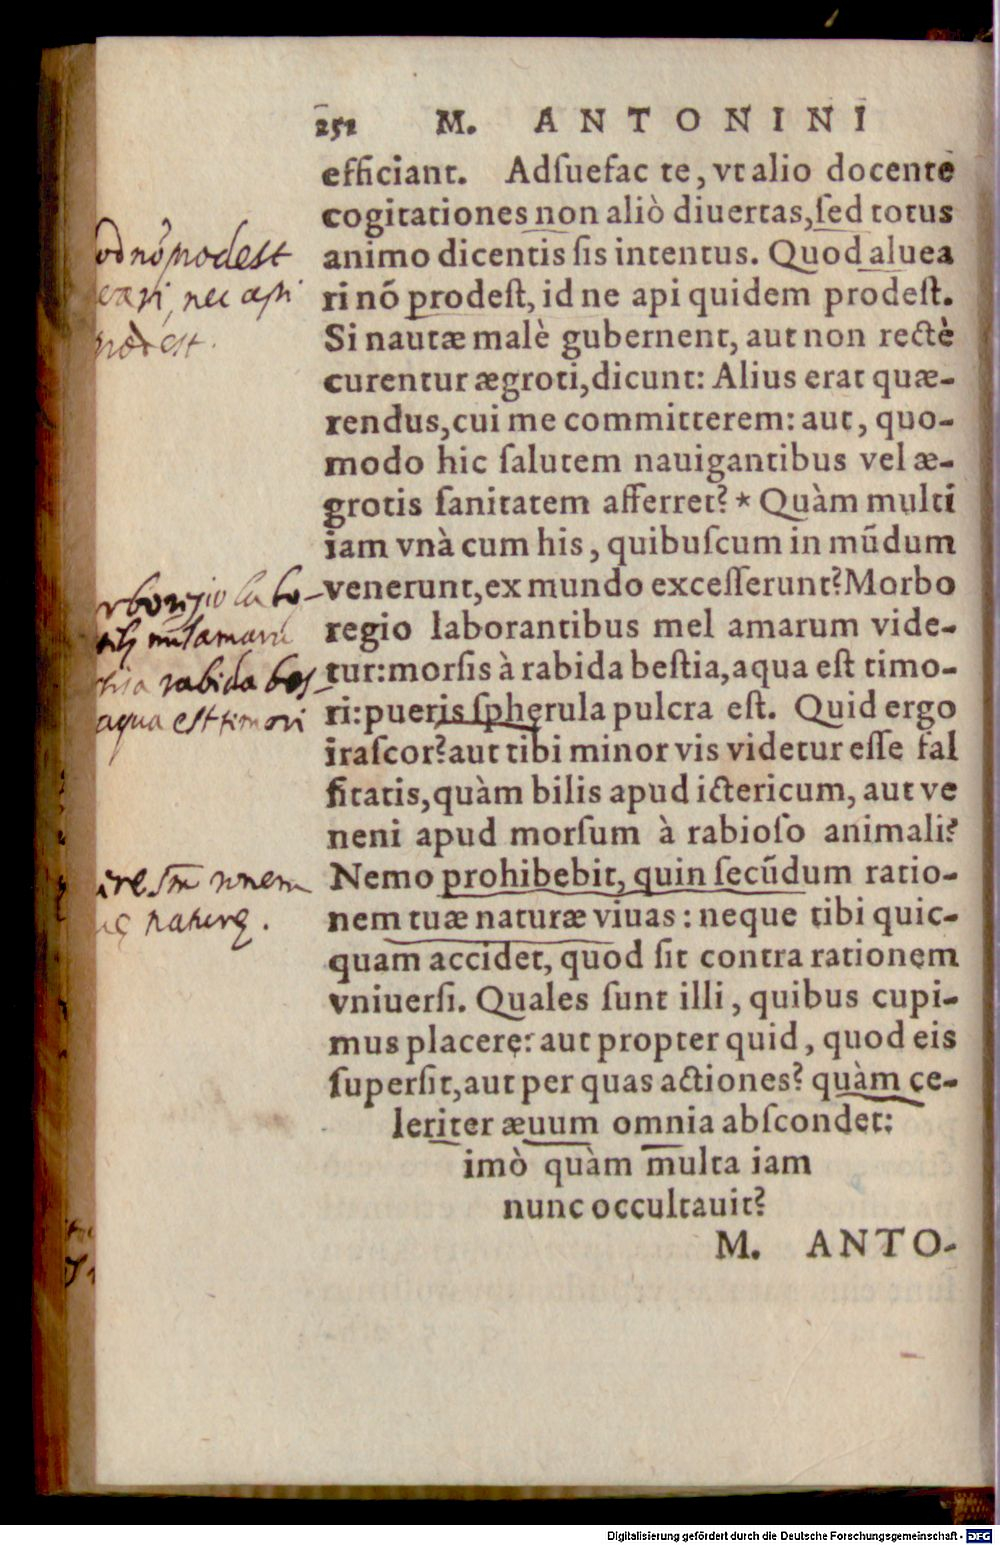 252 M. ANTONINI
efficiant. Adſuefac te, vt alio docente
cogitationes non aliò diuertas, ſed totus
animo dicentis ſis intentus. Quod aluea
ri nō prodeſt, id ne api quidem prodeſt.
Si nautæ malè gubernent, aut non rectè
curentur ægroti, dicunt: Alius erat quæ-
rendus, cui me committerem: aut, quo-
modo hic ſalutem nauigantibus vel æ-
grotis ſanitatem afferret? * Quàm multi
iam vnà cum his, quibuſcum in mūdum
venerunt, ex mundo exceſſerunt? Morbo
regio laborantibus mel amarum vide-
tur: morſis à rabida beſtia, aqua eſt timo-
ri: pueris ſpherula pulcra eſt. Quid ergo
iraſcor? aut tibi minor vis videtur eſſe fal
ſitatis, quàm bilis apud ictericum, aut ve
neni apud morſum à rabioſo animali?
Nemo prohibebit, quin ſecūdum ratio-
nem tuæ naturæ viuas: neque tibi quic-
quam accidet, quod ſit contra rationem
vniuerſi. Quales ſunt illi, quibus cupi-
mus placere: aut propter quid, quod eis
ſuperſit, aut per quas actiones? quàm ce-
leriter æuum omnia abſcondet:
imò quàm multa iam
nunc occultauit?
M. ANTO-
od nō prodest
eari, nec api
prodest.
rabida bes
aqua est timori
naturę.
Digitalisierung gefördert durch die Deutsche Forschungsgemeinschaft - DFG